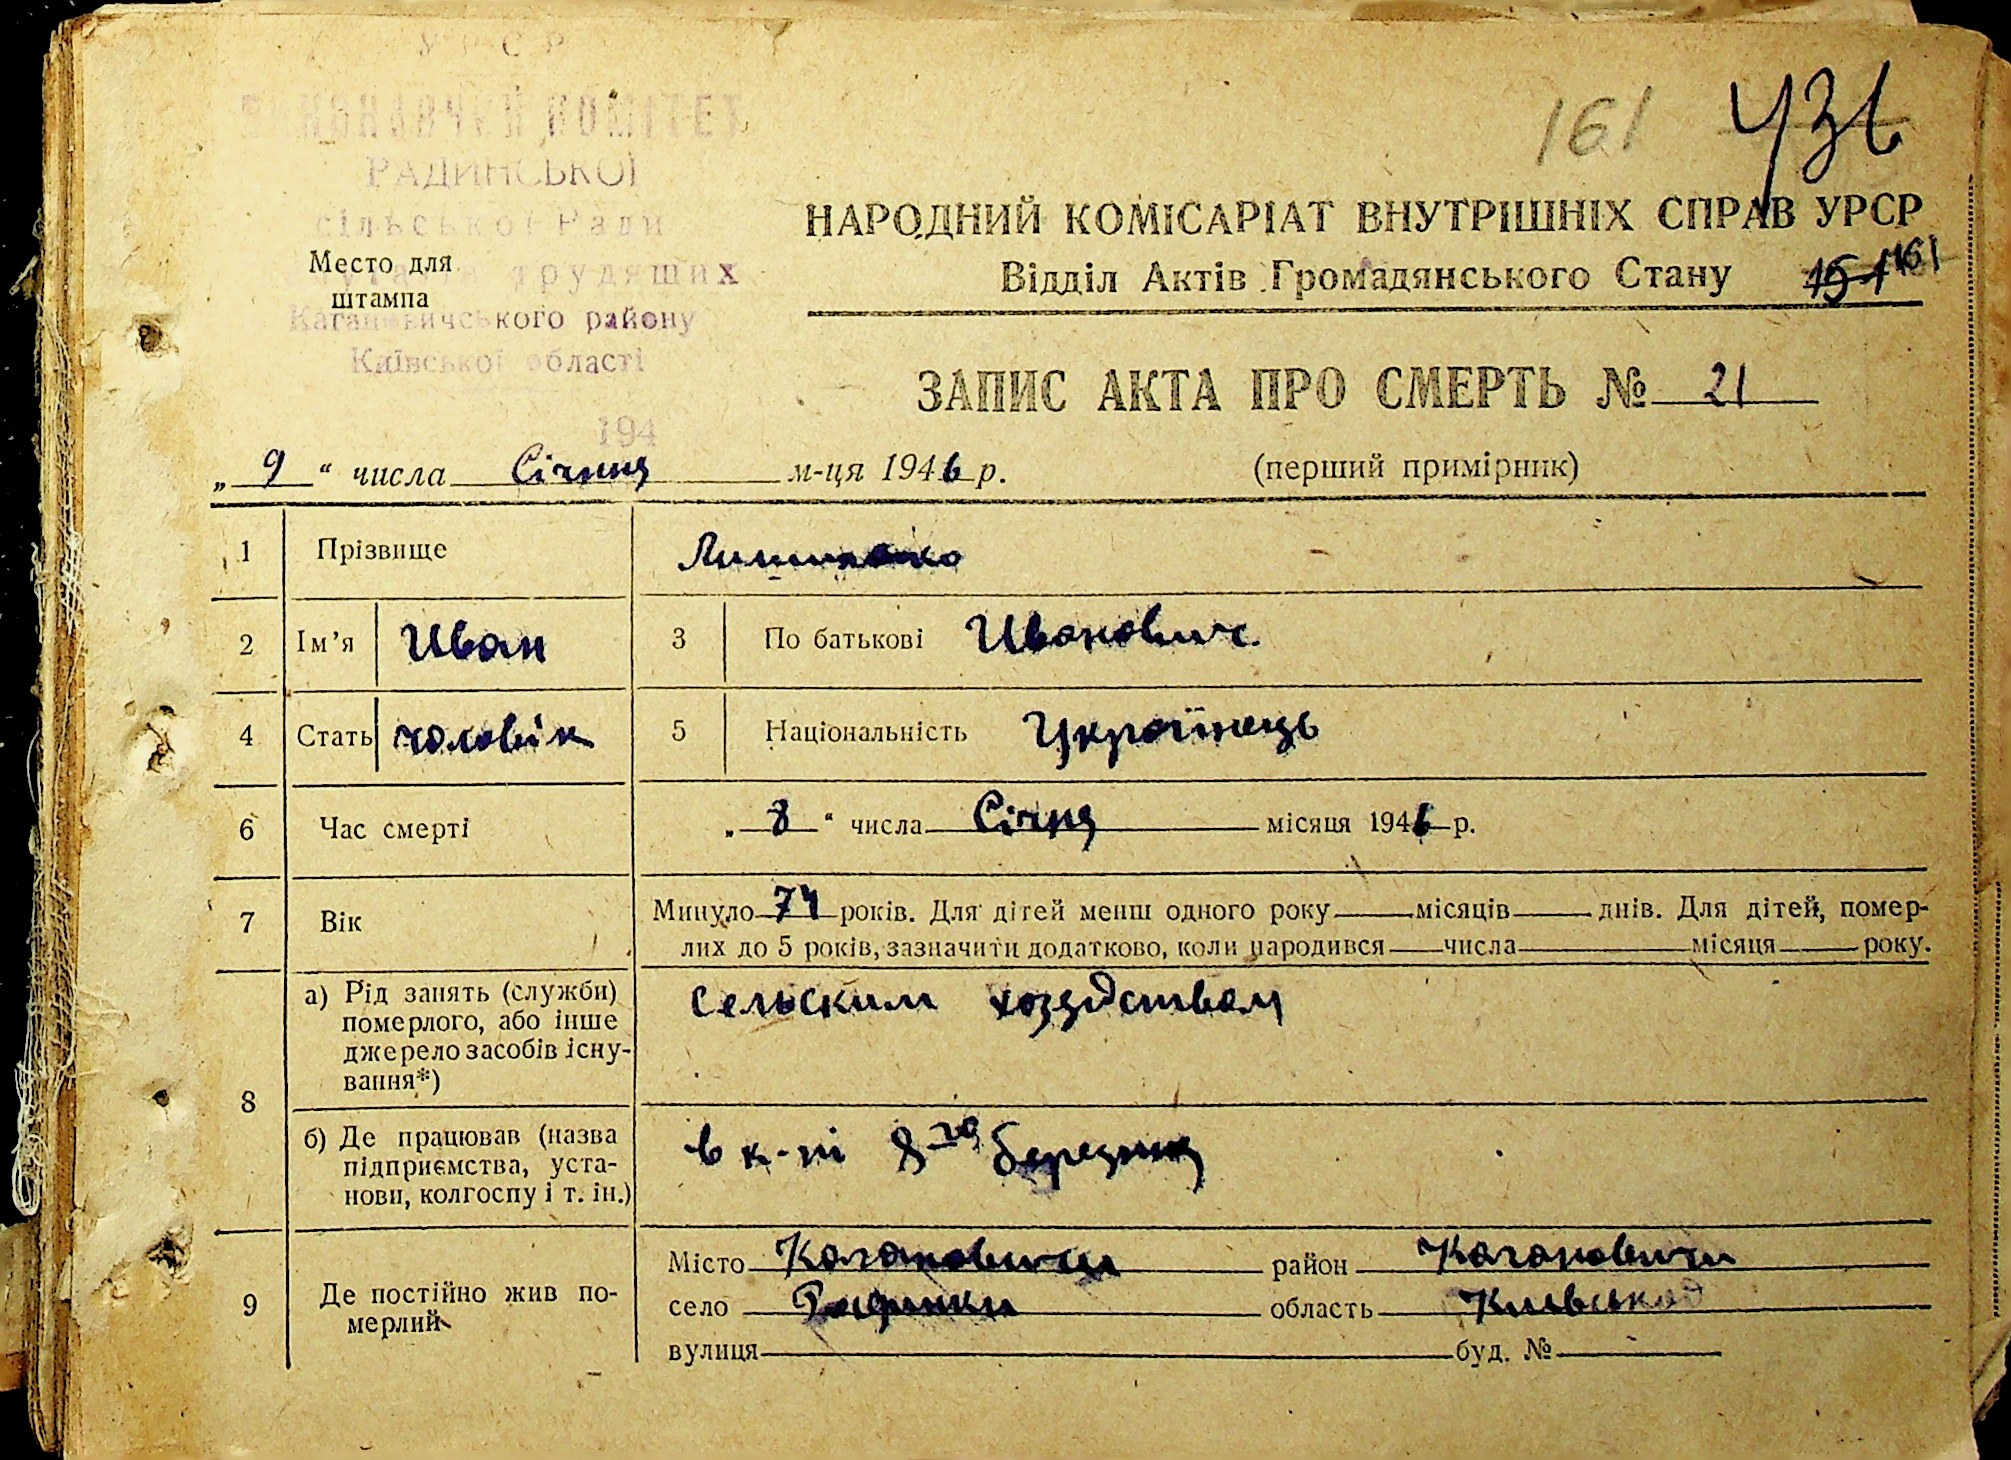 УРСР
ВИКОНАВЧИЙ КОМІТЕТ
РАДИНСЬКОЇ
сільської Ради
трудящих
Кагановичського району
Київської області
194
Место для
штампа
161 436
НАРОДНИЙ КОМІСАРІАТ ВНУТРІШНІХ СПРАВ УРСР
Відділ Актів Громадянського Стану 161
ЗАПИС АКТА ПРО СМЕРТЬ № 21
„ 9 “ числа Січния м-ця 1946 р. (перший примірник)
1 Прізвище
2 Ім’я Иван 3 По батькові Иванович.
4 Стать чоловік 5 Національність Українець
6 Час смерті „ 8 “ числа Січня місяця 1946 р.
7 Вік Минуло 74 років. Для дітей менш одного року місяців днів. Для дітей, помер-
лих до 5 років, зазначити додатково, коли народився числа місяця року.
8 а) Рід занять (служби) сельским хозяйством
померлого, або інше
джерело засобів існу-
вання*)
б) Де працював (назва в к-пі 8го березня
підприємства, уста-
нови, колгоспу і т. ін.)
9 Де постійно жив по-
мерлий
Місто Кагановичи район Кагановичи
село область Київська
вулиця буд. №